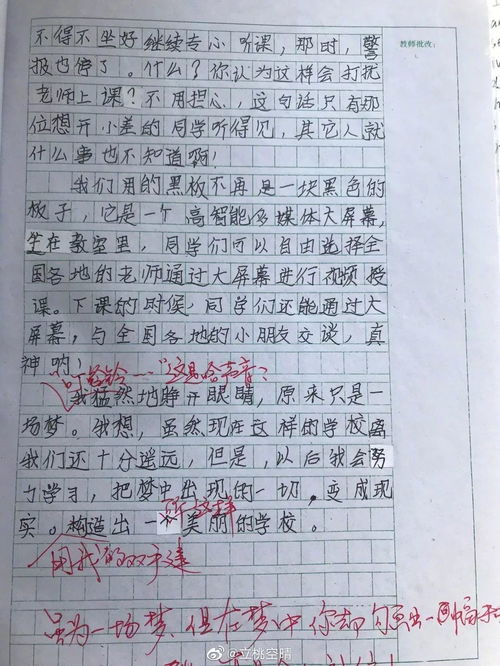 教师批改:
不得不坐好继续专心听课，那时，警
报也停了。什么？你认为这样会打扰
老师上课？不用担心，这句话只有那
位想开小差的同学听得见，其它人就
什么事也不知道啊！
我们用的黑板不再是一块黑色的
板子，它是一个高智能多媒体大屏幕，
坐在教室里，同学们可以自由选择全
国各地的老师通过大屏幕进行视频授
课。下课的时候，同学们还能通过大
屏幕，与全国各地的小朋友交谈，真
神哟！
"这是啥声音？
我猛然地睁开眼睛，原来只是一
场梦。我想，虽然现在这样的学校离
我们还十分遥远，但是，以后我会努
力学习，把梦中出现的一切，变成现
实。构造出一 美丽的学校。
用我的双手建
虽为一场梦，但在梦中你却勾画出一幅
@立桃空晴